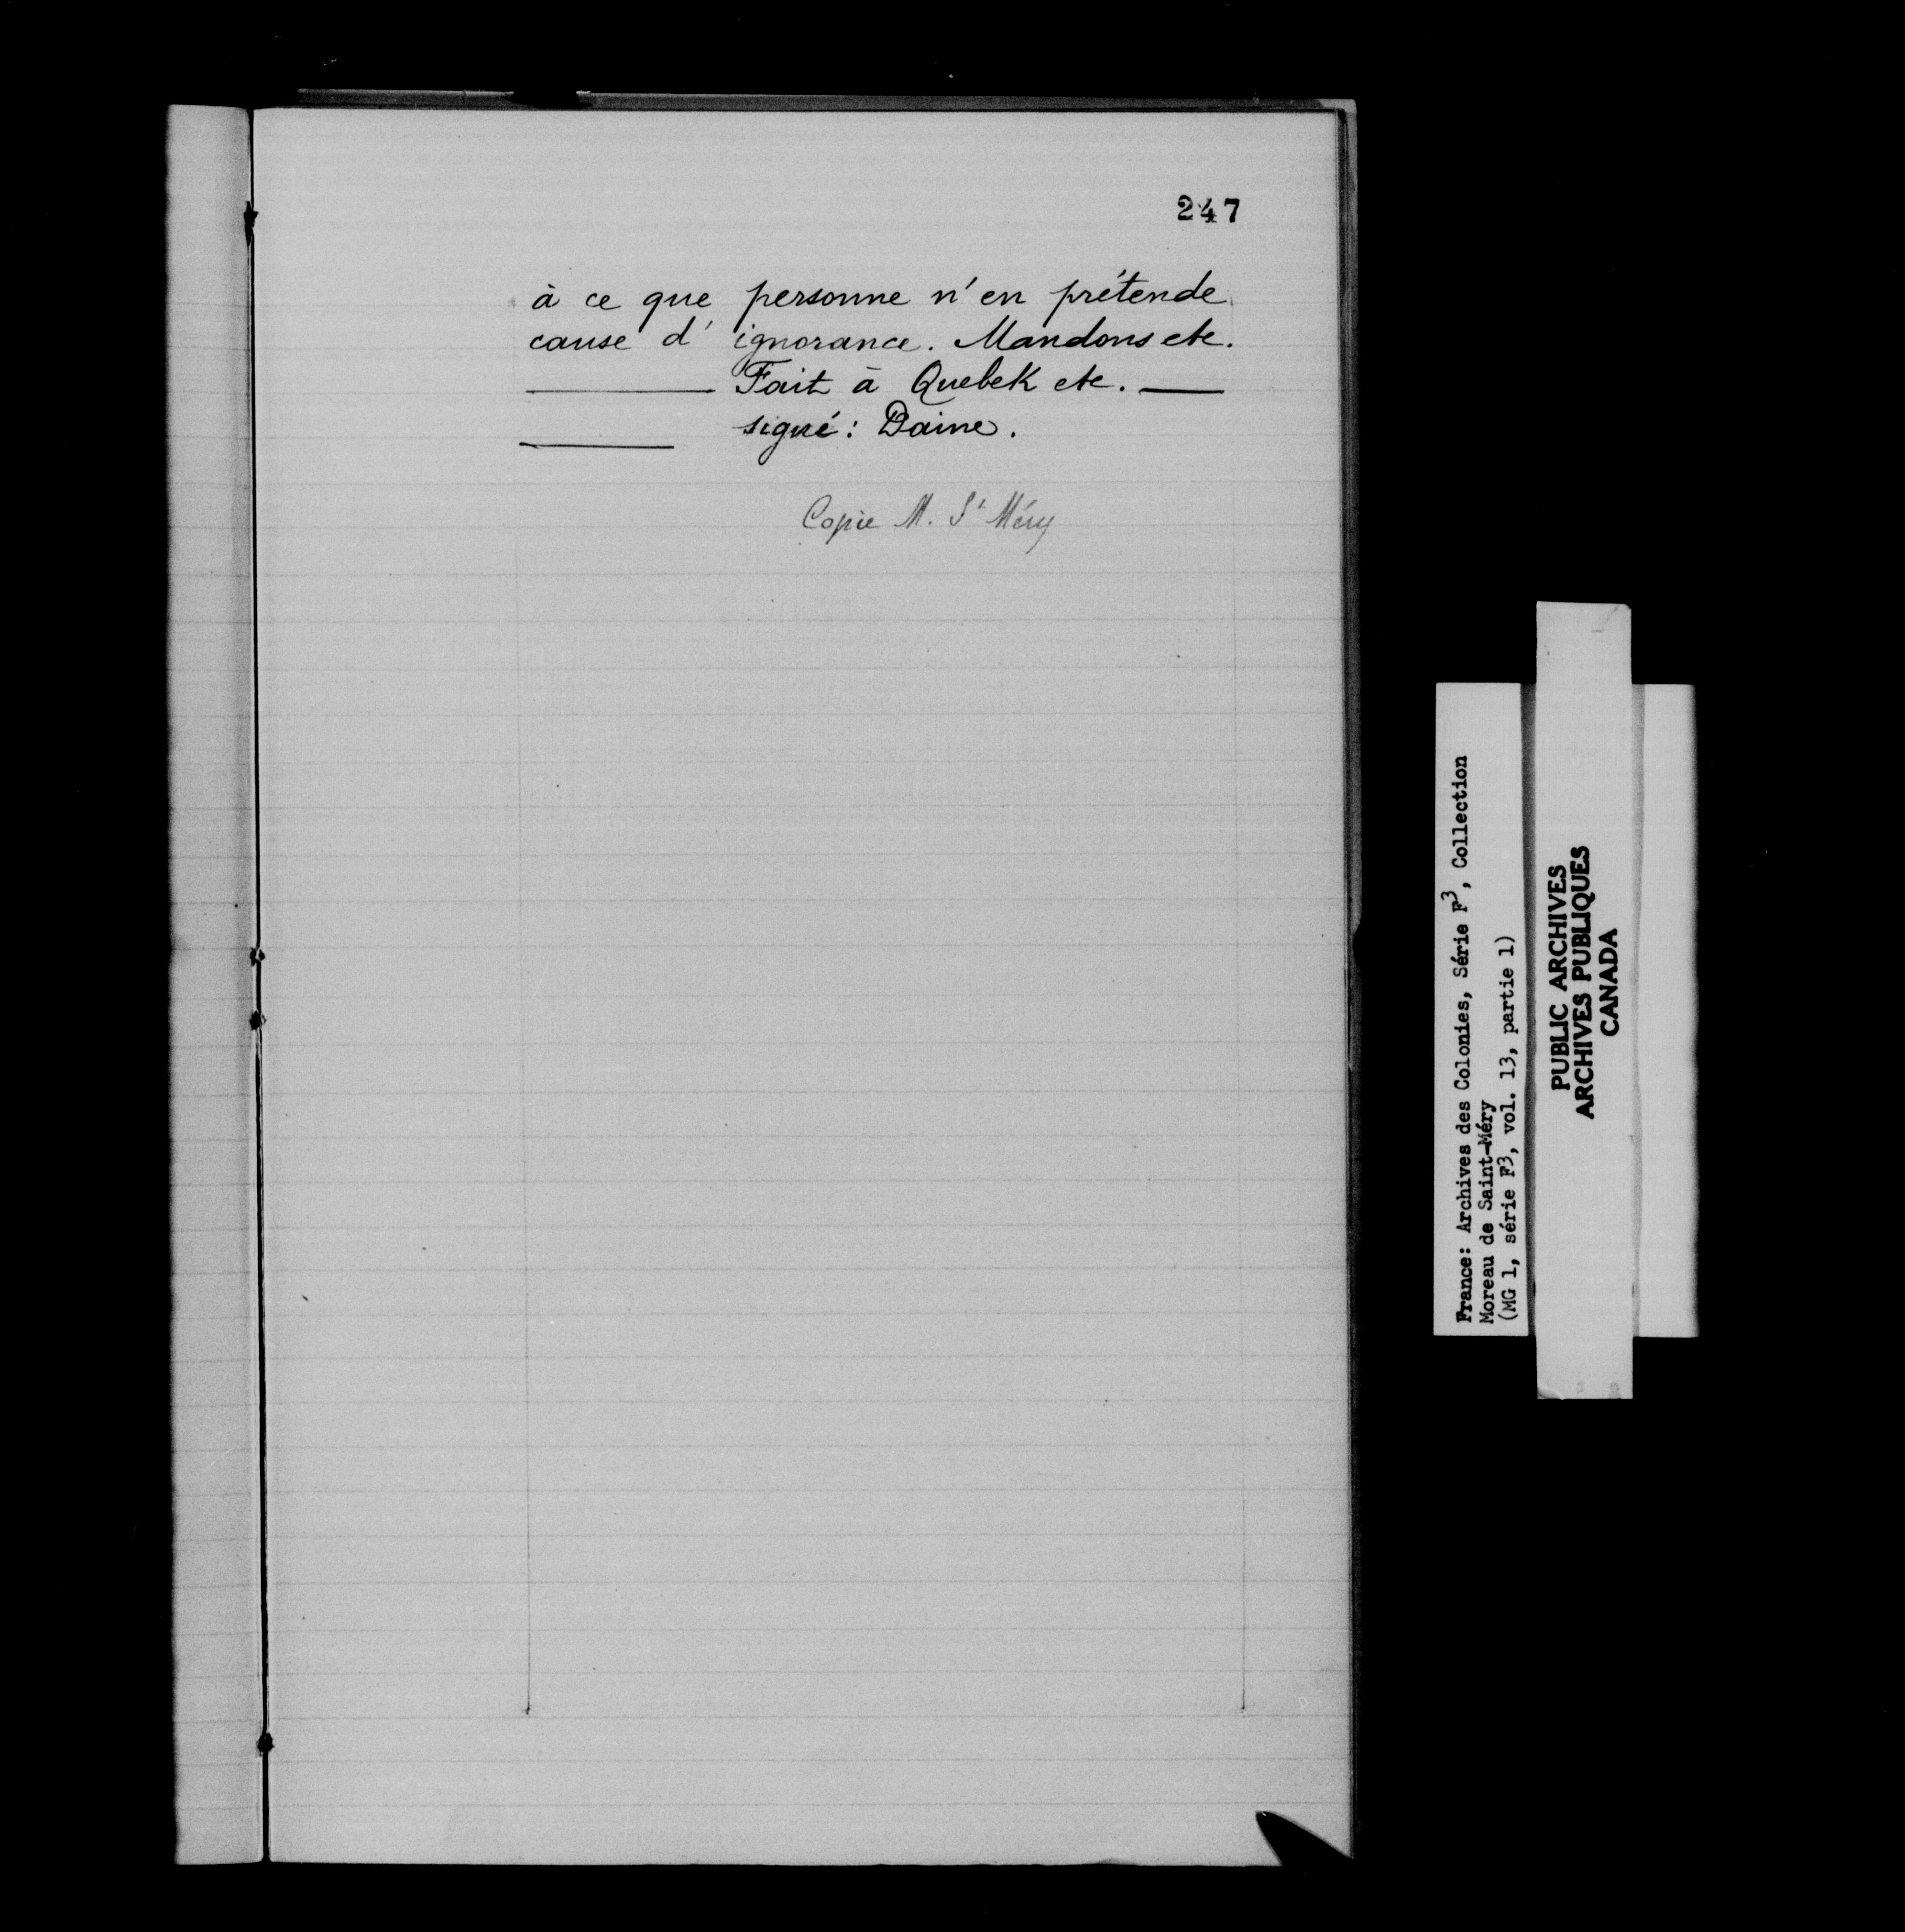 247
à ce que personne n'en prétende
cause d'ignorance. Mandons etc.
Fait à Quebek etc.
signé: Daine.
Copie M. St Méry
France: Archives des Colonies, Série F3, Collection
Moreau de Saint-Méry
(MG 1, série F3, vol. 13, partie 1)
PUBLIC ARCHIVES
ARCHIVES PUBLIQUES
CANADA